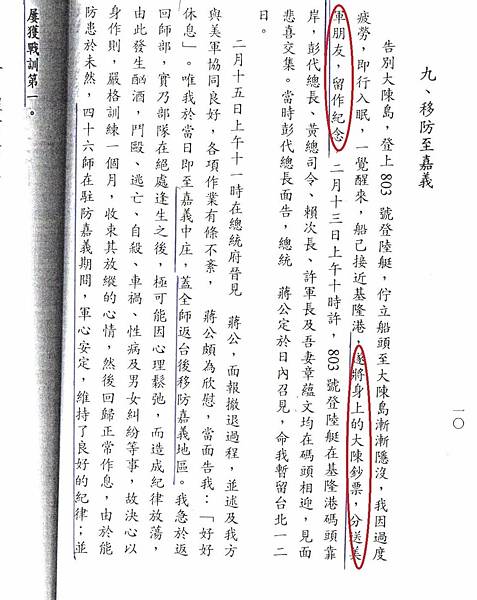 九、移防至嘉義
告別大陳島，登上 803 號登陸艇，佇立船頭至大陳島漸漸隱沒，我因過度
疲勞，即行入眠，一覺醒來，船已接近基隆港，遂將身上的大陳鈔票，分送美
軍朋友，留作紀念 二月十三日上午十時許，803 號登陸艇在基隆港碼頭靠
岸，彭代總長、黃總司令、賴次長、許軍長及吾妻章蘊文均在碼頭相迎，見面
悲喜交集。當時彭代總長面告，總統　蔣公定於日內召見，命我暫留台北一二
日。
二月十五日上午十一時在總統府晉見　蔣公，面報撤退過程，並述及我方
與美軍協同良好，各項作業有條不紊，　蔣公頗為欣慰，當面告我：「好好
休息」。唯我於當日即至嘉義中庄，蓋全師返台後移防嘉義地區。我急於返
回師部，實乃部隊在絕處逢生之後，極可能因心理鬆弛，而造成紀律放蕩，
由此發生酗酒，鬥毆、逃亡、自殺、車禍、性病及男女糾紛等事，故決心以
身作則，嚴格訓練一個月，收束其放縱的心情，然後回歸正常作息，由於能
防患於未然，四十六師在駐防嘉義期間，軍心安定，維持了良好的紀律；並
屢獲戰訓第一。
一〇